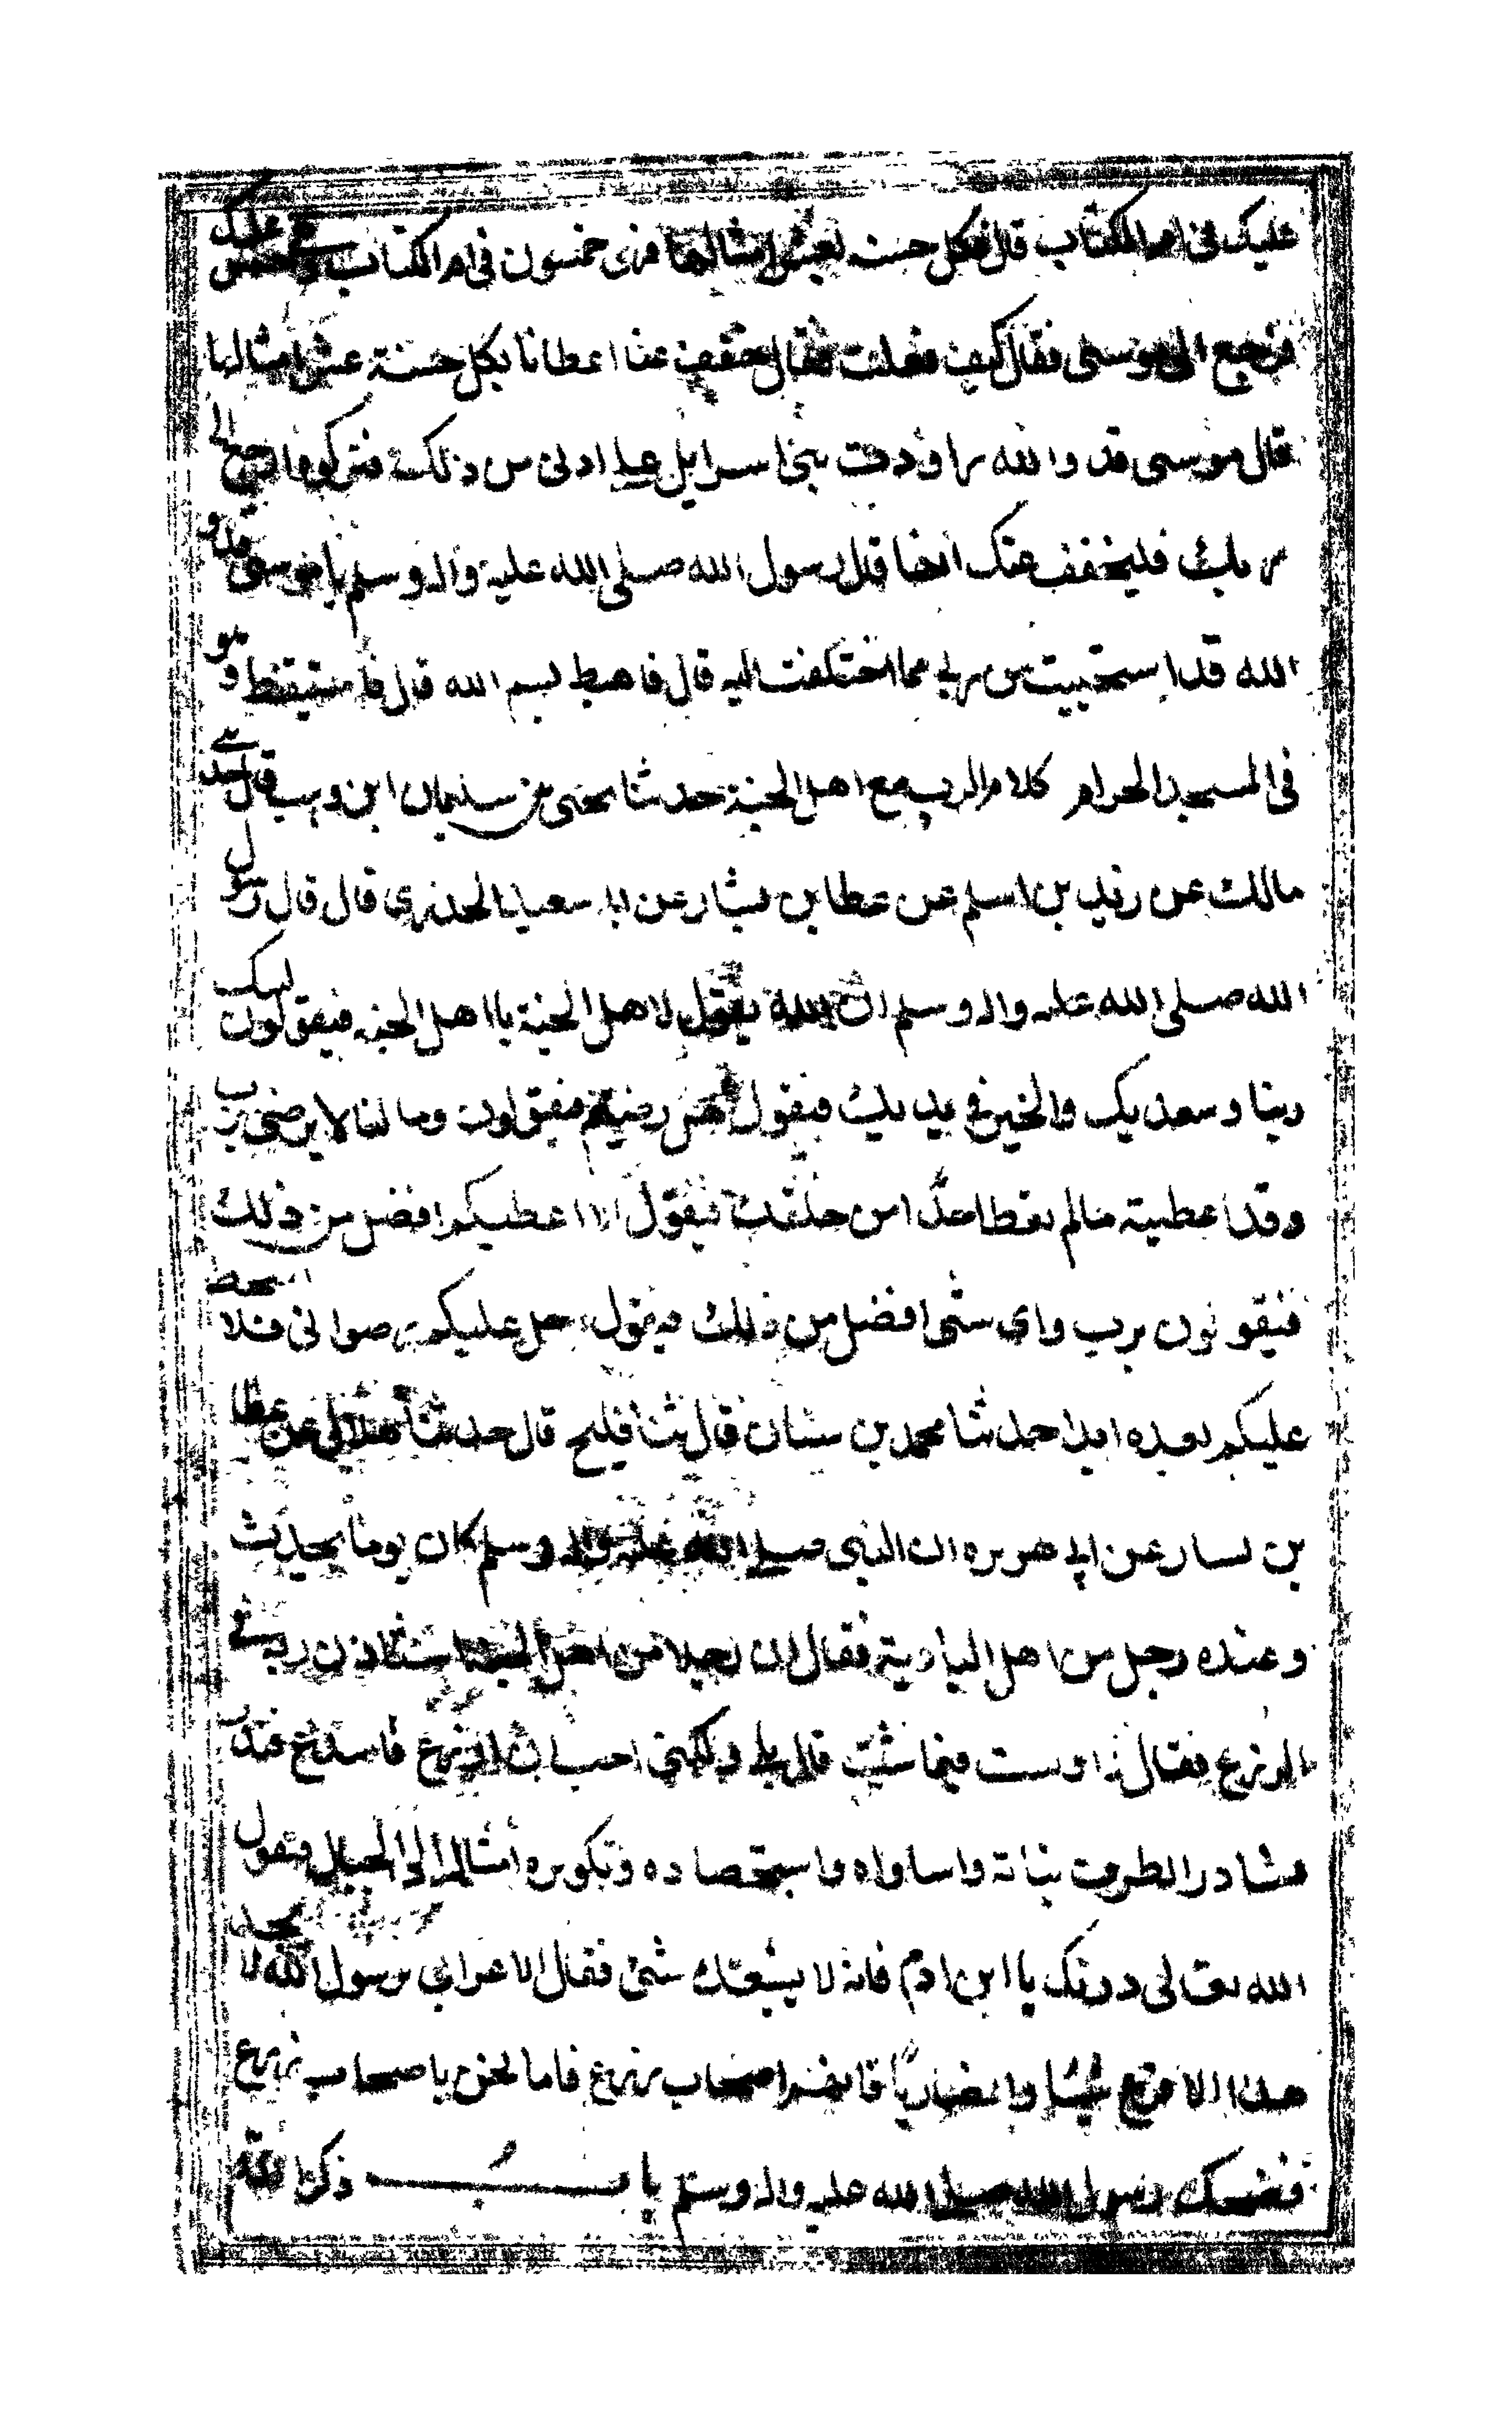 عليك في ام الكتاب قال فكل حسنة بعشر امثالها فهي خمسون في ام الكتاب وهي خمس عليك
فرجع الى موسى فقال كيف فعلت فقال خفف عنا اعطانا بكل حسنة عشر امثالها
قال موسى قد والله راودت بني اسرايل على ادنى من ذلك فتركوه ارجع الى
ربك فليخفف عنك ايضا قال رسول الله صلى الله عليه واله وسلم يا موسى قد و
الله قد استحييت من ربي مما اختلفت اليه قال فاهبط بسم الله قال فاستيقظ وهو
في المسجد الحرام كلام الرب مع اهل الجنة حدثنا يحيى بن سليمان ابن وهب قال حدثني
مالك عن زيد بن اسلم عن عطا بن يسار عن ابي سعيد الخدري قال قال رسول
الله صلى الله عليه واله وسلم ان الله يقول لاهل الجنة يا اهل الجنة فيقولون لبيك
ربنا وسعديك والخير في يديك فيقول هل رضيتم فيقولون وما لنا لا نرضى رب
وقد اعطيته مالم تعط احدًا من خلقك فيقول الا اعطيكم افضل من ذلك
فيقولون يرب واي شئ افضل من ذلك فيقول احل عليكم رضواني فلا اسخط
عليكم بعده ابدا حدثنا محمد بن سنان قال ثنا فليح قال حدثنا هلال عن عطا
بن يسار عن ابي هريره ان النبي صلى الله عليه واله وسلم كان يوما يحدث
وعنده رجل من اهل البادية فقال ان رجلا من اهل الجنة استاذن ربه في
الزرع فقال اولست فيما شئت قال بلى ولكني احب ان ازرع فاسرع فبذر
فتبادر الطرف نباته واستواه واستحصاده وتكويره امثال الجبال فيقول
الله تعالى دونك يا ابن ادم فانه لا يشبعك شئ فقال الاعرابي يرسول الله لا تجد
هذا الا قرشيا وانصاريًا فانهم اصحاب زرع فاما نحن يا صحاب زرع
فضحك رسول الله صلى الله عليه واله وسلم باب ذكر الله